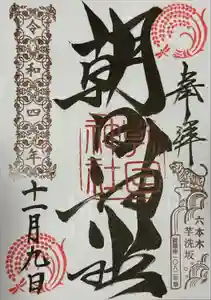 奉拝
六本木
芋洗坂
朝日神社
令和四年
十一月九日